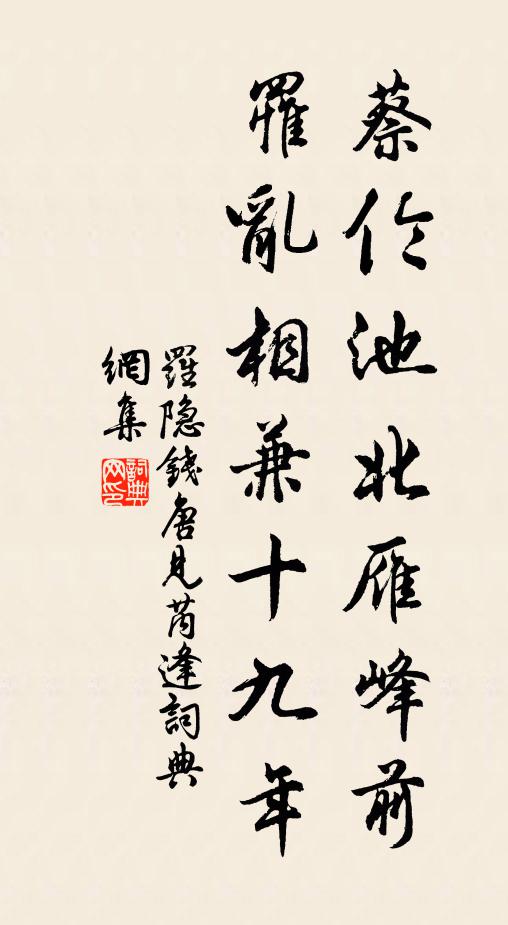 蔡伦池北雁峰前
罹亂相兼十九年
羅隐錢唐見芮逢詞典
網集
詞典
网印